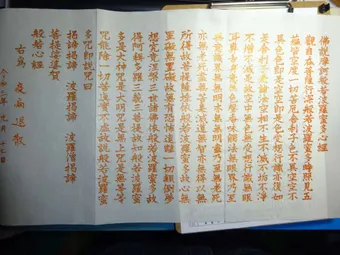 佛說摩訶般若波羅蜜多心經
觀自在菩薩行深般若波羅蜜多時照見五
蘊皆空度一切苦厄舍利子色不異空空不
異色色即是空空即是色受想行識亦復如
是舍利子是諸法空相不生不滅不垢不淨
不增不減是故空中無色無受想行識無眼
耳鼻舌身意無色聲香味觸法無眼界乃至
無意識界無無明亦無無明盡乃至無老死
亦無老死盡無苦集滅道無智亦無得以無
所得故菩提薩埵依般若波羅蜜多故心無
罣礙無罣礙故無有恐怖遠離一切顛倒夢
想究竟涅槃三世諸佛依般若波羅蜜多故
得阿耨多羅三藐三菩提故知般若波羅蜜
多是大神咒是大明咒是無上咒是無等等
咒能除一切苦真實不虛故說般若波羅蜜
多咒即說咒曰
揭諦揭諦 波羅揭諦 波羅僧揭諦
菩提娑婆賀
般若心經
右為 疫病退散
九月十七日